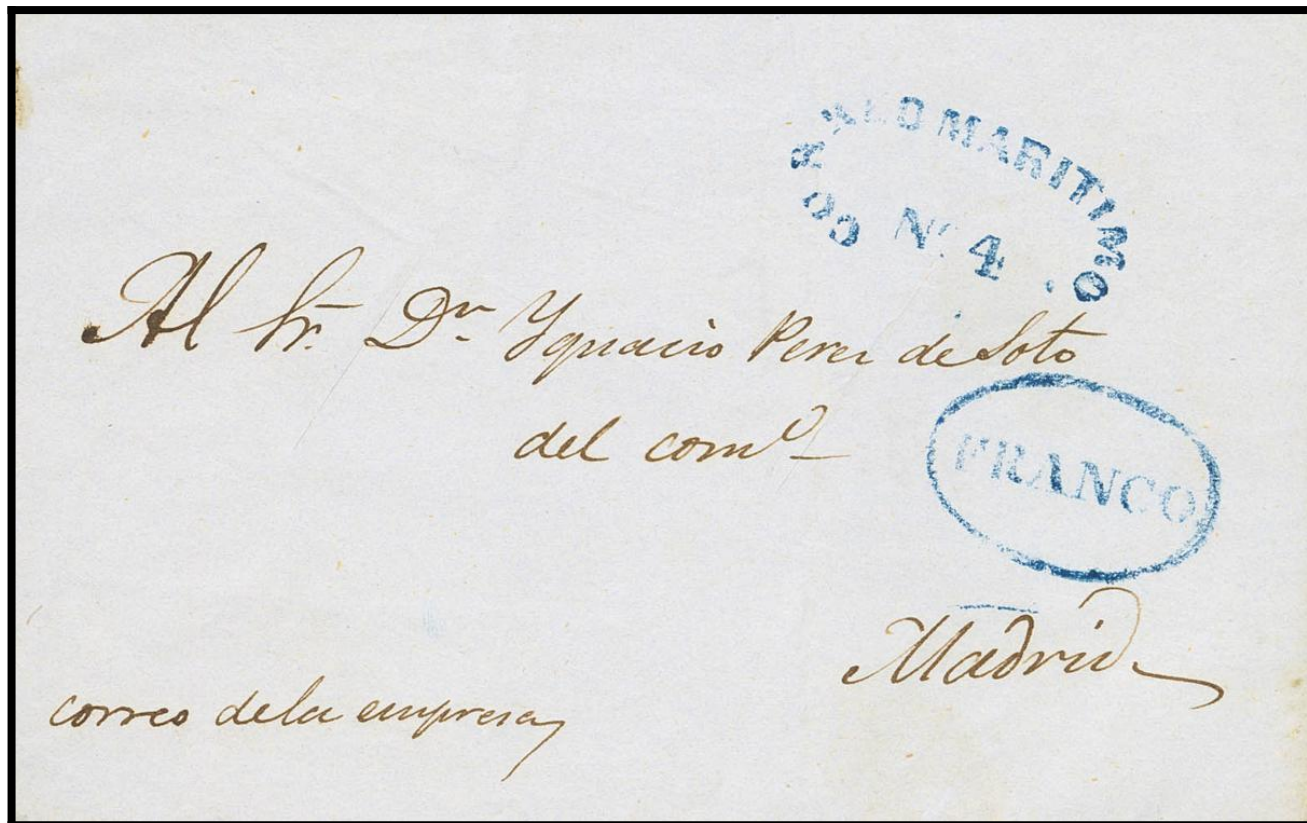 CORREO MARITIMO
Nº 4
Al Sr. Dn Ygnacio Perez de Soto
del comº
FRANCO
Madrid
correo dela empresa